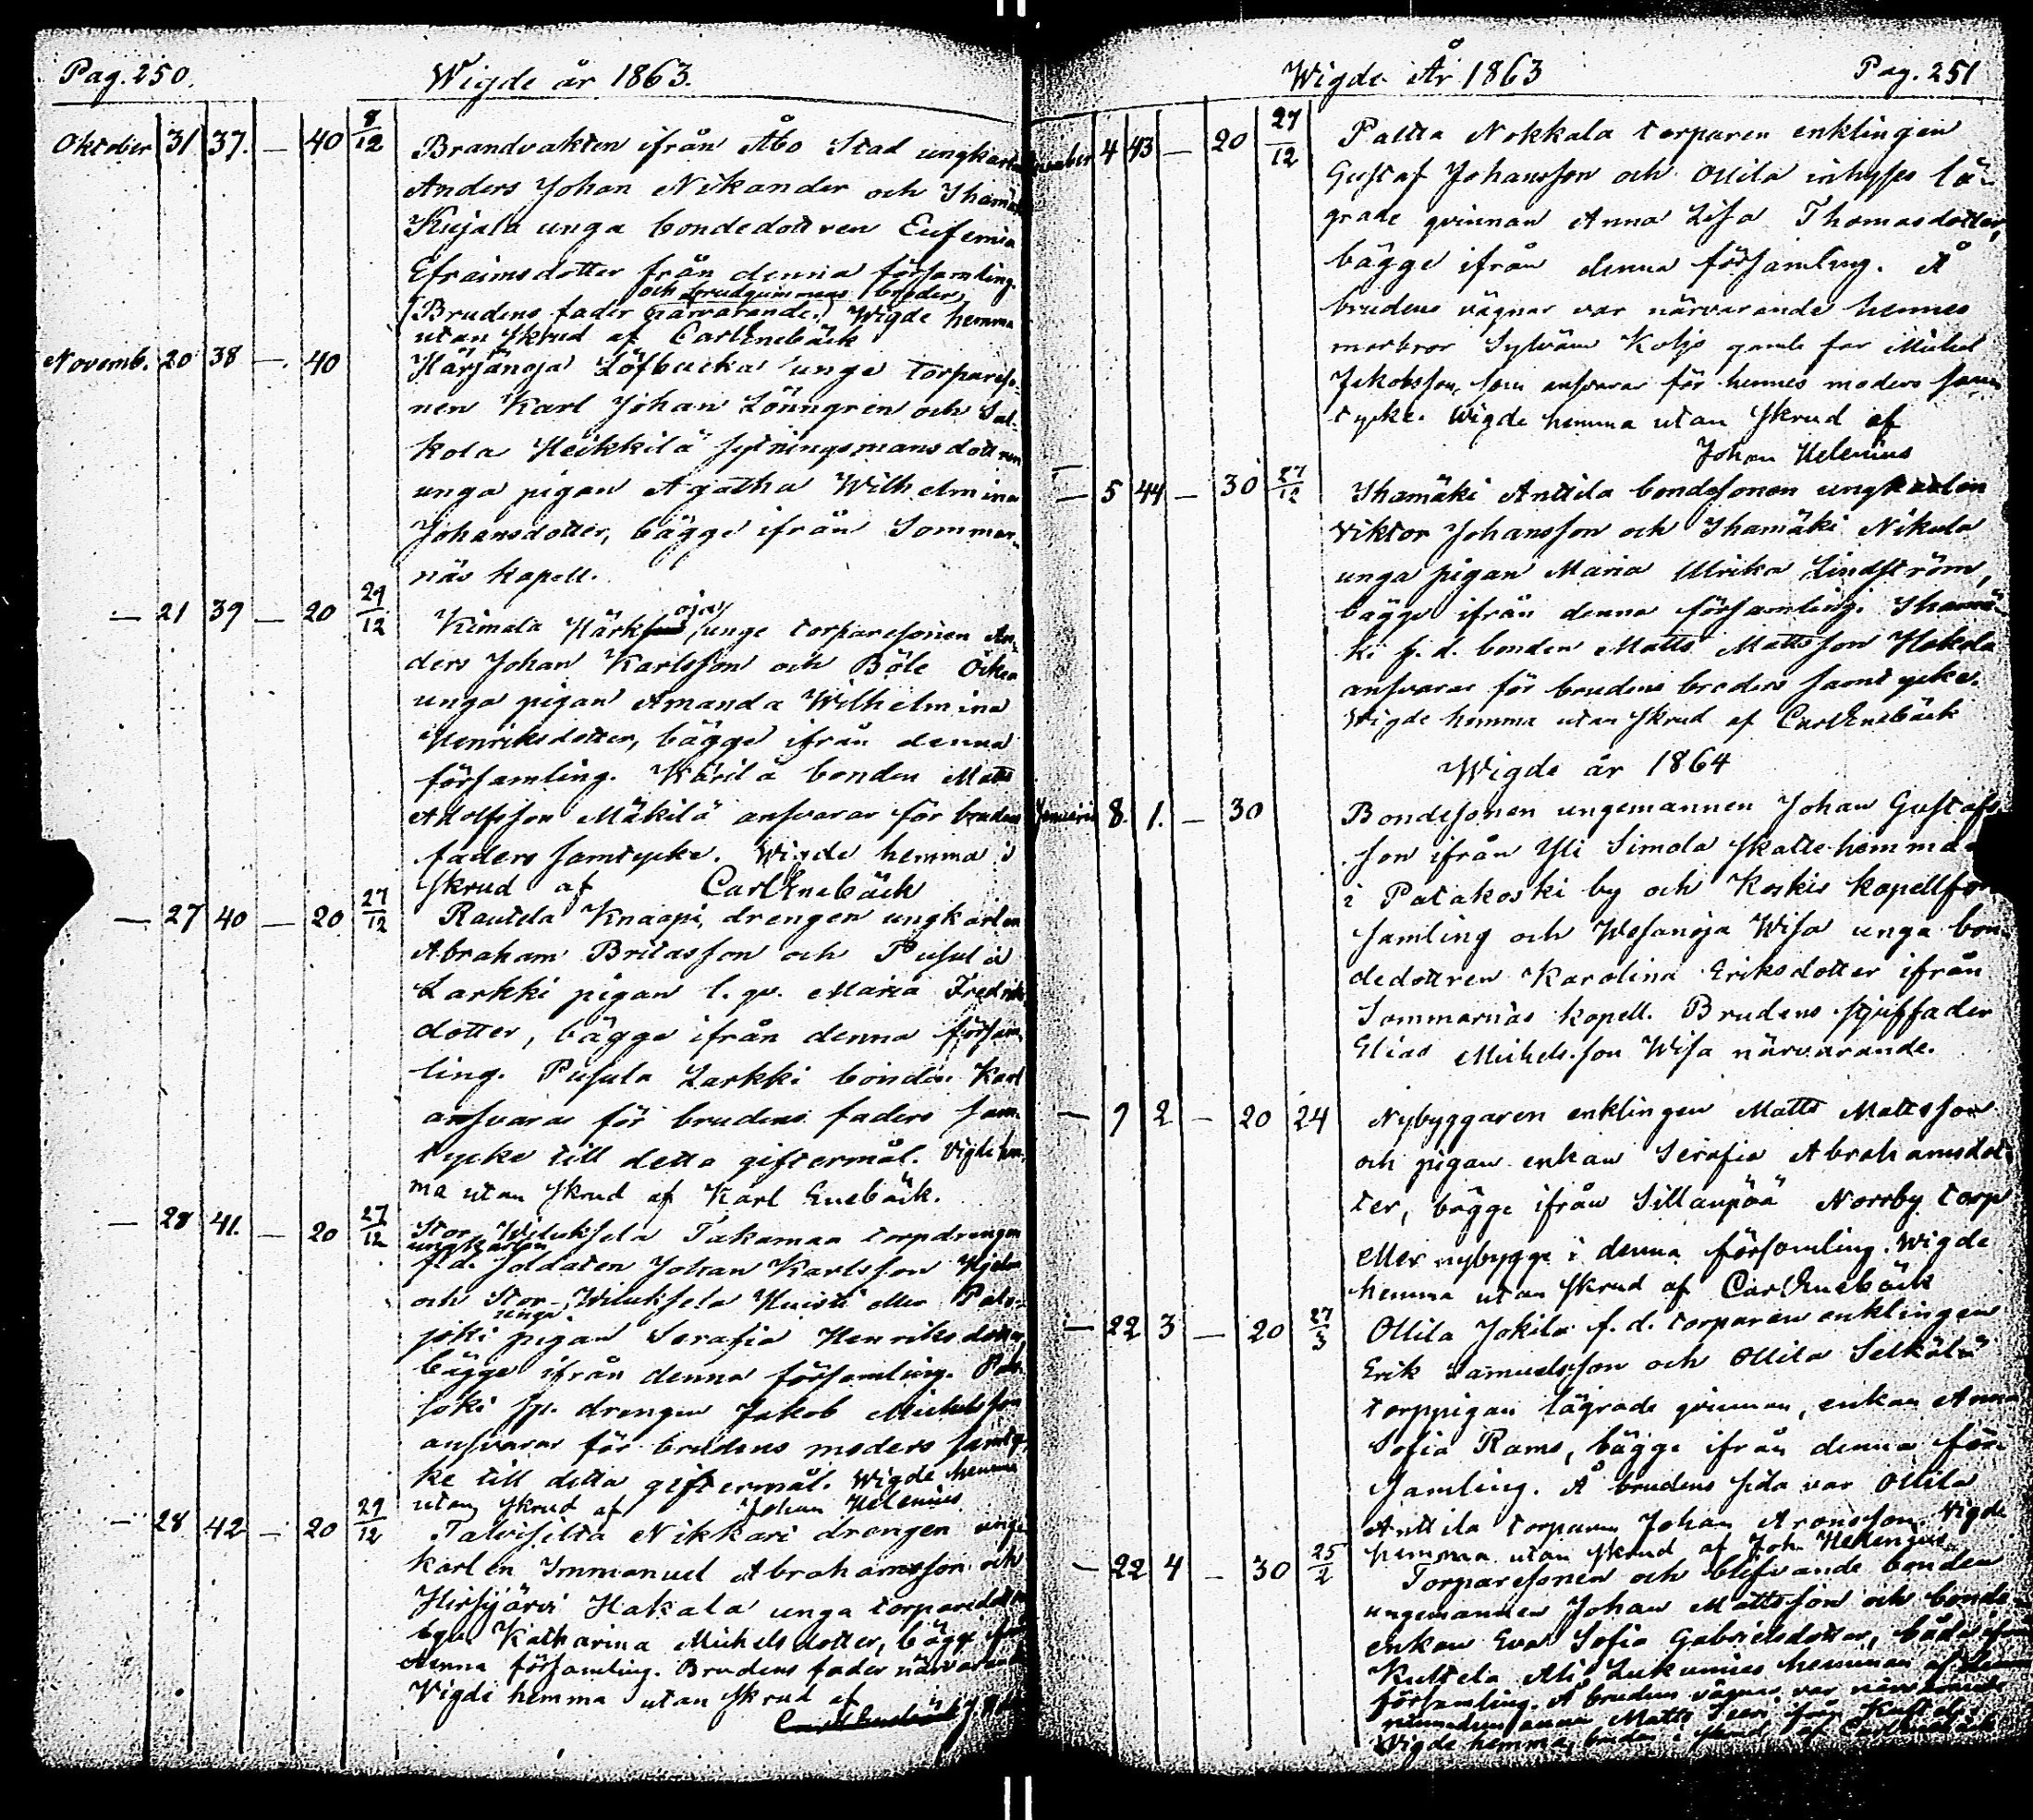 Pag. 250.
Wigde år 1863.
Oktober 31 37. — 40 8/12 Brandvakten ifrån Åbo Stad ungkarlen
Anders Johan Nikander och Ihamäki
Kujala unga bondedottren Eufemia
Efraimsdotter från denna församling.
och brudgummens broder
(Brudens fader närvarande.) Wigde hemma
utan skrud af Carl Enebäck
Novemb. 20 38 — 40 Härjänoja Löfbacka unge torpareso-
nen Karl Johan Lönngren och Sal-
kola Heikkilä sytningsmansdottren
unga pigan Agatha Wilhelmina
Johansdotter, bägge ifrån Sommar-
näs kapell.
— 21 39 — 20 29/12 Kimala Härk oja unge torparesonen An-
ders Johan Karlsson och Böle
unga pigan Amanda Wilhelmina
Henriksdotter, bägge ifrån denna
församling. Kärilä bonden Matts
Adolfsson Mäkilä ansvarar för brudens
faders samtycke. Wigde hemma i
skrud af Carl Enebäck
— 27 40 — 20 27/12 Rautela Knaapi, drengen ungkarlen
Abraham Britasson och Pusula
Larkki pigan l. qv. Maria Fredriks
dotter, bägge ifrån denna försam-
ling. Pusula Larkki bonden Karl
ansvarar för brudens faders sam-
tycke till detta giftermål. Vigde hem-
ma utan skrud af Karl Enebäck.
— 28 41. — 20 27/12 Stor Wiluksela Takamaa torpdrengen
ungkarlen
f.d. soldaten Johan Karlsson Hjelm
och Stor-Wiluksela Huisti eller Palo-
unga
joki pigan Serafia Henriksdotter,
bägge ifrån denna församling. Palo-
joki sp. drengen Jakob Michelsson
ansvarar för brudens moders samtyc-
ke till detta giftermål. Wigde hemma
utan skrud af Johan Helenius
— 28 42 — 20 29/12 Talvisilta Nikkari drengen ung-
karlen Immanuel Abrahamsson och
Hirsijärvi Hakala unga torparedottren
Katharina Michelsdotter, bägge från
denna församling. Brudens fader närvarande
Vigde hemma utan skrud af
Wigde År 1863
Pag. 251
December 4 43 — 20 27/12 Paltta Nokkala torparen enklingen
Gustaf Johansson och Ollila inhyses lä-
grade qvinnan Anna Lisa Thomasdotter,
bägge ifrån denna församling. Å
brudens vägnar var närvarande hennes
morbror Sylvään Koljo gamle far Michel
Jakobsson, som ansvarar för hennes moders sam-
tycke. Wigde hemma utan skrud af
Johan Helenius
— 5 44 — 30 27/12 Ihamäki Anttila bondesonen ungkarlen
Viktor Johansson och Ihamäki Nikula
unga pigan Maria Ulrika Lindström,
bägge ifrån denna församling. Ihamä-
ki f. d. bonden Matts Mattsson Hakala
ansvarar för brudens broders samtycke.
Wigde hemma utan skrud af Carl Enebäck
Wigde år 1864
Januarii 8. 1. — 30 Bondesonen ungemannen Johan Gustafs-
son ifrån Yli Simola skattehemman
i Patakoski by och Koskis kapellför-
samling och Wesanoja Wisa unga bon-
dedottren Karolina Eriksdotter ifrån
Sommarnäs kapell. Brudens styffader
Elias Michelsson Wisa närvarande.
— 9 2 — 20 24 Nybyggaren enklingen Matts Mattsson
och pigan enkan Serafia Abrahamsdot-
ter, bägge ifrån Sillanpää Norrby torp
eller nybygge i denna församling. Wigde
hemma utan skrud af Carl Enebäck
— 22 3 — 20 27/3 Ollila Jokila f. d. torparen enklingen
Erik Samuelsson och Ollila Seikälä
torppigan lägrade qvinnan, enkan Anna
Sofia Rams, bägge ifrån denna för-
samling. Å brudens sida var Ollila
Anttila torparen Johan Aronsson. Vigde
hemma utan skrud af Joh. Helenius.
— 22 4 — 30 25/2 Torparesonen och blifvande bonden
ungemannen Johan Mattsson och bonde-
enkan Eva Sofia Gabrielsdotter, båda ifrån
Kultela Ali Lukumies hemman af denna
församling. Å brudens vägnar var närvarande
nämndemannen Matts ifrån Kultela
Wigde hemma, bruden i skrud af Carl Enebäck